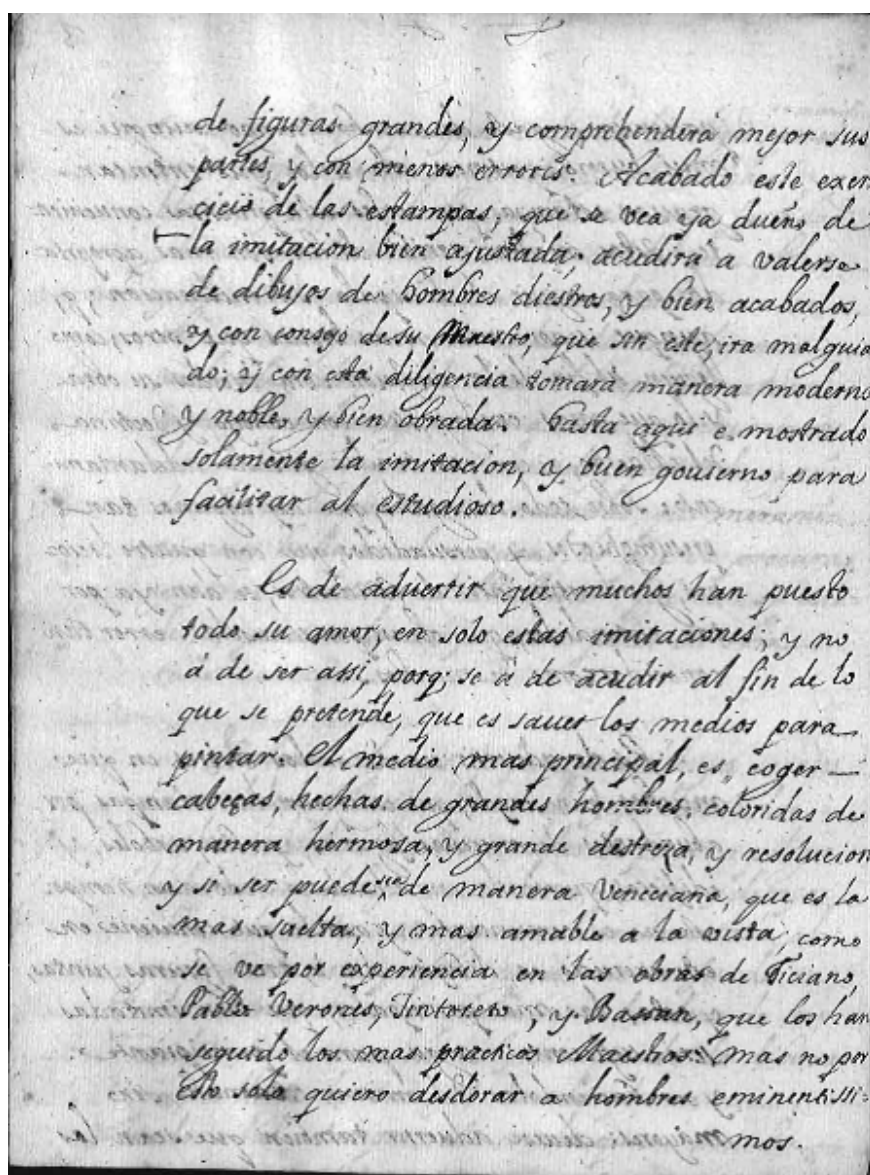 de figuras grandes, y comprehenderá mejor sus
partes, y con menos errores. Acabado este exer
cicio de las estampas, que se vea ya dueño de
la imitacion bien ajustada, acudira a valerse
de dibujos de hombres diestros, y bien acabados,
y con consejo de su Maestro, que sin este, ira mal guia
do; y con esta diligencia tomará manera moderna
y noble, y bien obrada. hasta aqui e mostrado
solamente la imitacion, y buen gouierno para
facilitar al estudioso.
Es de aduertir que muchos han puesto
todo su amor, en solo estas imitaciones; y no
á de ser assi, porq; se á de acudir al fin de lo
que se pretende, que es sauer los medios para
pintar. El medio mas principal, es, coger
cabeças, hechas de grandes hombres, coloridas de
manera hermosa, y grande destreza, y resolucion
y si ser puede, sea de manera Veneciana, que es la
mas suelta, y mas amable a la vista, como
se ve por experiencia en las obras de Ticiano,
Pablo Verones, Tintoreto, y Bassan, que los han
seguido los mas practicos Maestros: mas no por
esto solo quiero desdorar a hombres eminentissi-
mos.